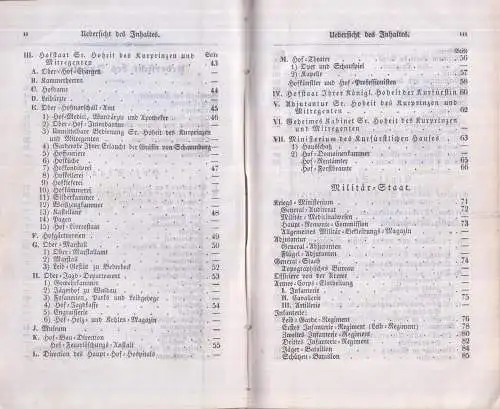 II Uebersicht des Inhaltes.
Seite
III. Hofstaat Sr. Hoheit des Kurprinzen und
Mitregenten 43
A. Ober-Hof-Chargen —
B. Kammerherren —
C. Hofdame 44
D. Leibärzte —
E. Ober-Hofmarschall-Amt 45
1) Hof-Medici, Wundärzte und Apotheker 46
2) Hof-Intendantur —
3) Unmittelbare Bedienung Sr. Hoheit des Kurprinzen
und Mitregenten —
4) Garderobe Ihrer Erlaucht der Gräfin von Schaumburg —
5) Hoffouriere —
6) Hofküche —
7) Hofkonditorei 47
8) Hofkellerei —
9) Hofkieferei —
10) Hofkämmerei —
11) Silberkammer —
12) Weißzeugkammer —
13) Kastellane 48
14) Pagen —
15) Hof-Livreestaat —
F. Hofgärtnereien 49
G. Ober-Marstall 50
1) Ober-Marstallamt —
2) Marstall —
3) Leib-Gestüt zu Beberbeck 52
H. Ober-Jagd-Departement 53
1) Gemeinkammer —
2) Jägerhof zu Waldau —
3) Fasanerien, Parks und Leibgehege —
4) Hof-Jagdkasse 54
5) Engrasserie —
6) Hof-Holz- und Kohlen-Magazin —
J. Museum —
K. Hof-Bau-Direction —
Hof-Feuerlöschungs-Anstalt 55
L. Direction des Haupt-Hof-Hospitals —
Uebersicht des Inhaltes. III
Seite
M. Hof-Theater 56
1) Oper und Schauspiel —
2) Kapelle 57
Hofkünstler und Hof-Professionisten 58
IV. Hofstaat Ihrer Königl. Hoheit der Kurfürstin 60
V. Adjutantur Sr. Hoheit des Kurprinzen und
Mitregenten 62
VI. Geheimes Kabinet Sr. Hoheit des Kurprinzen
und Mitregenten —
VII. Ministerium des Kurfürstlichen Hauses 63
1) Hausschatz —
2) Hof-Domainenkammer —
Hof-Rentämter 65
Hof-Forstbeamte 66
Militär-Staat.
Kriegs-Ministerium 71
General-Auditorat 72
Militär-Medicinalwesen —
Haupt-Remonte-Commission —
Allgemeines Militär-Bekleidungs-Magazin —
Adjutantur —
General-Adjutanten —
Flügel-Adjutanten —
General-Stab 74
Topographisches Bureau —
Officiere von der Armee —
Armee-Corps-Eintheilung —
I. Infanterie —
II. Cavallerie 75
III. Artillerie —
Infanterie:
Leib-Garde-Regiment 76
Erstes Infanterie-Regiment (Leib-Regiment) 78
Zweites Infanterie-Regiment 80
Drittes Infanterie-Regiment 82
Jäger-Bataillon 84
Schützen-Bataillon 85